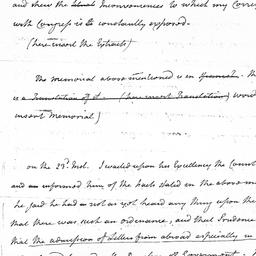 and shew the Inconveniences to which my Corres
with Congress is constantly exposed.
(here insert the Extracts)
The Memorial above mentioned is in
is a Translation of it. (here insert Translation)
insert Memorial)
on the 23d. Inst. I waited upon his Excellency the Count
and informed him of the facts stated in the above m
he said he had not as yet heard any thing upon the
that there was such an ordinance, and that
that the admission of Letters from abroad especially in